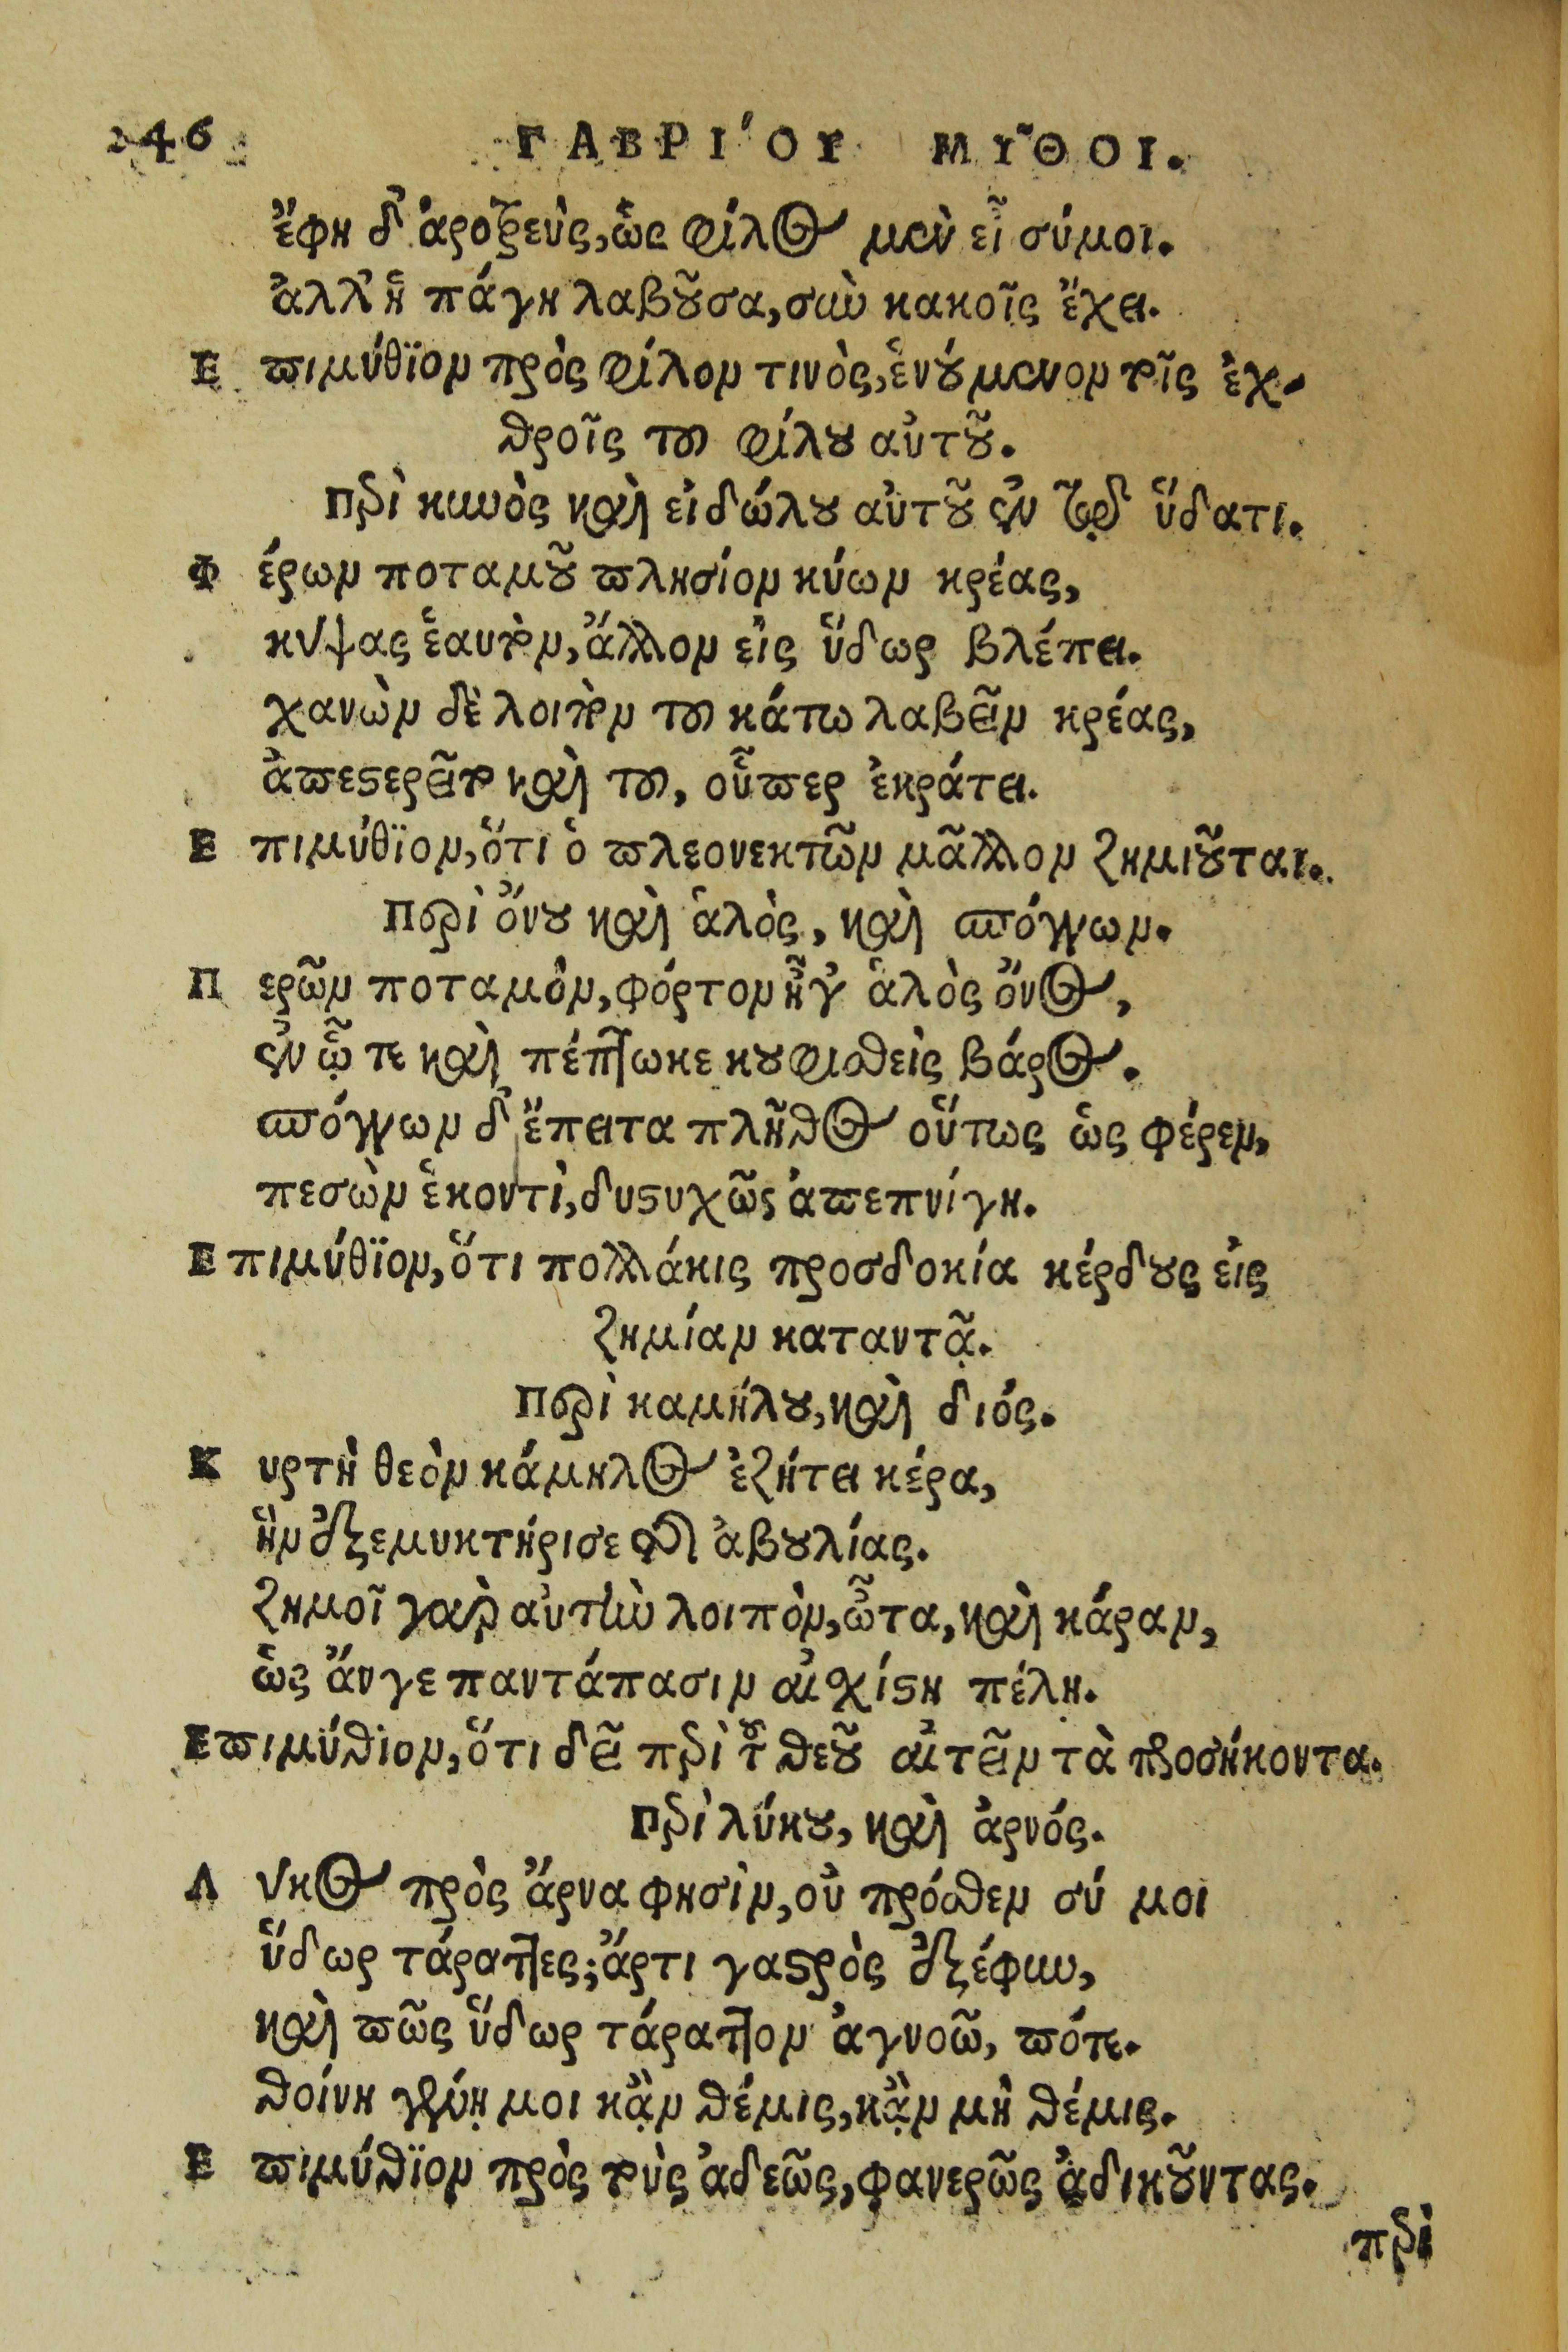 246 ΓΑΒΡΙ΄ΟΥ ΜΥ͂ΘΟΙ.
ἔφη δ' ἀροτρεὺς, ὡς φίλος μὲν εἶ σύμοι.
ἀλλ' ἡ πάγη λαβοῦσα, σὺν κακοῖς ἔχει.
Επιμύθϊον πρὸς φίλον τινὸς, ἑνούμενον τοῖς ἐχ-
θροῖς του φίλου αὐτοῦ.
Περὶ κυνὸς καὶ εἰδώλου αὐτοῦ ἐν τῷ ὕδατι.
Φέρων ποταμοῦ πλησίον κύων κρέας,
κύψας ἑαυτὸν, ἄλλον εἰς ὕδωρ βλέπει.
χανὼν δὲ λοιπὸν του κάτω λαβεῖν κρέας,
ἀπεστερεῖτο καὶ του, οὗπερ ἐκράτει.
Επιμύθϊον, ὅτι ὁ πλεονεκτῶν μᾶλλον ζημιοῦται.
Περὶ ὄνου καὶ ἁλὸς, καὶ σπόγγων.
Περῶν ποταμὸν, φόρτον ἦγ' ἁλὸς ὄνος,
ἐν ᾧ τε καὶ πέπτωκε κουφισθεὶς βάρος.
σπόγγων δ' ἔπειτα πλῆθος οὕτως ὡς φέρεν,
πεσὼν ἑκοντὶ, δυστυχῶς ἀπεπνίγη.
Επιμύθϊον, ὅτι πολλάκις προσδοκία κέρδους εἰς
ζημίαν καταντᾷ.
Περὶ καμήλου, καὶ διός.
Κυρτὴ θεὸν κάμηλος ἐζήτει κέρα,
ἣν ἐξεμυκτήρισε τῆς ἀβουλίας.
ζημοῖ γὰρ αὐτὴν λοιπὸν, ὦτα, καὶ κάραν,
ὡς ἄνγε παντάπασιν αἰσχίστη πέλη.
Επιμύθϊον, ὅτι δεῖ περὶ τοῦ θεοῦ αἰτεῖν τὰ προσήκοντα.
Περὶ λύκου, καὶ ἀρνός.
Λύκος πρὸς ἄρνα φησὶν, οὐ πρόσθεν σύ μοι
ὕδωρ τάραττες; ἄρτι γαστρὸς ἐξέφυν,
καὶ πῶς ὕδωρ τάραττον ἀγνοῶ, πότε.
θοίνη γένῃ μοι κᾂν θέμις, κᾂν μὴ θέμις.
Επιμύθϊον πρὸς τοὺς ἀδεῶς, φανερῶς ἀδικοῦντας.
περὶ